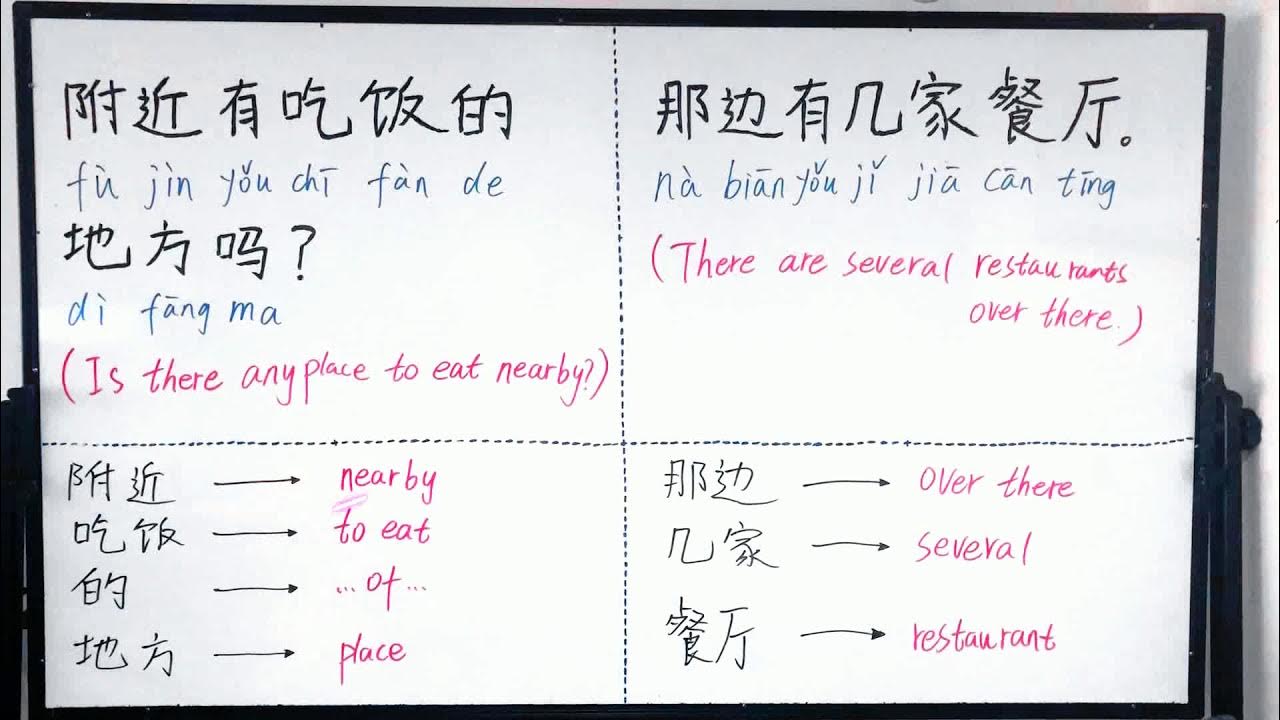 附近有吃饭的
fù jìn yǒu chī fàn de
地方吗?
dì fāng ma
(Is there any place to eat nearby?)
那边有几家餐厅。
nà biān yǒu jǐ jiā cān tīng
(There are several restaurants
over there.)
附近 → nearby
吃饭 → to eat
的 → ... of ...
地方 → place
那边 → over there
几家 → several
餐厅 → restaurant